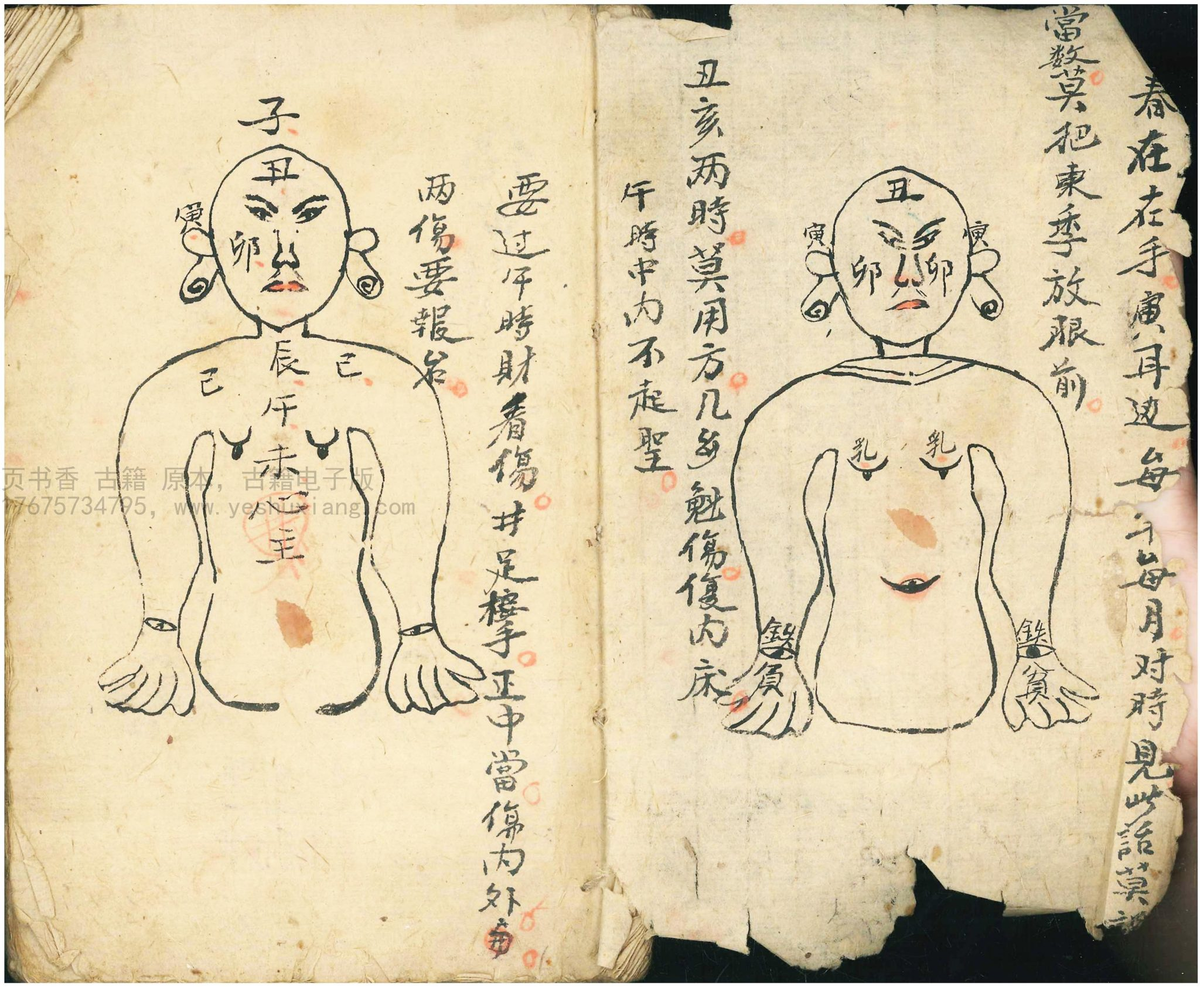 春在在手寅耳边每年每月对時見此話莫
當数莫把東季放眼前
丑
寅 寅
卯 卯
乳 乳
鉄 鉄
負 貧
丑亥两時莫用方几 魁傷傷内床
午時中内不起聖
要过午時財看傷井足 手正中當傷内外
两傷要報
子
丑
寅
卯
辰
已 已
午
未
主
页书香 古籍 原本, 古籍电子版
7675734795, www.yeshuxiang.com